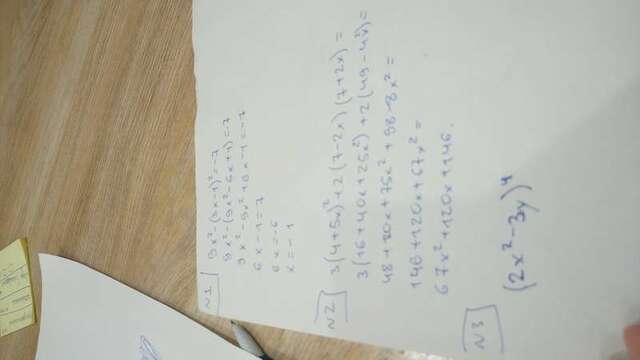 №1
9x²-(3x-1)²=-7
9x²-(9x²-6x+1)=-7
9x²-9x²+6x-1=-7
6x-1=7
6x=-6
x=-1
№2
3(4+5x)²+2(7-2x)(7+2x)=
3(16+40x+25x²)+2(49-4x²)=
48+120x+75x²+98-8x²=
146+120x+67x²=
67x²+120x+146.
№3
(2x²-3y)⁴